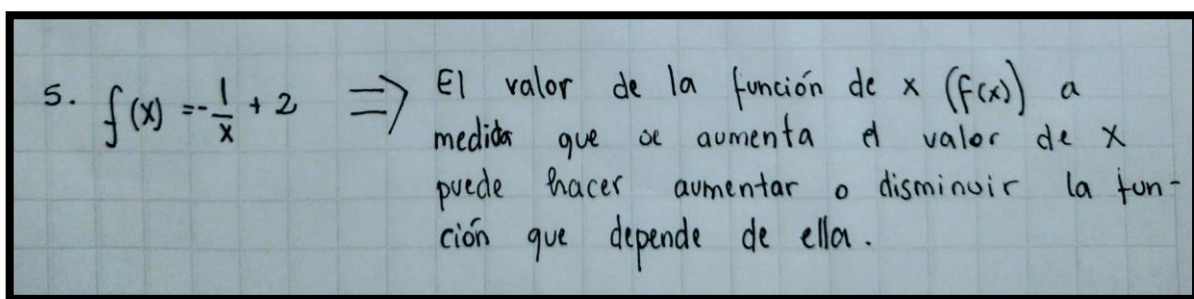 5. f(x) = -1/x + 2 ⇒ El valor de la función de x (f(x)) a
medida que se aumenta el valor de x
puede hacer aumentar o disminuir la fun-
ción que depende de ella.